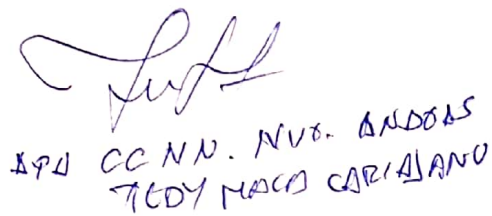 APU CC NN. NVO. ANDOAS
TEDY MACA CARIAJANO